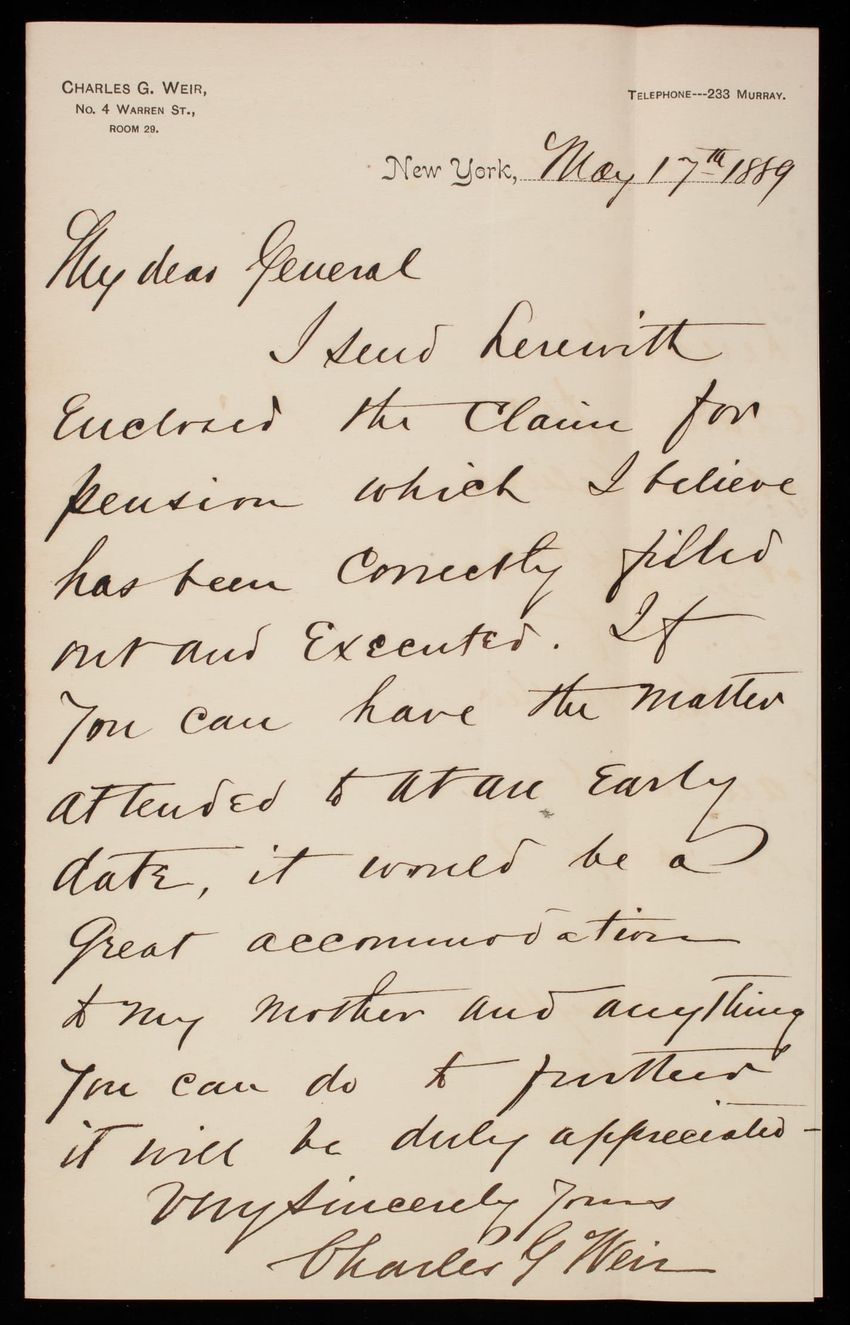 CHARLES G. WEIR,
No. 4 WARREN ST.,
ROOM 29.
TELEPHONE---233 MURRAY.
New York, May 17th 1889
My dear General
I send herewith
Enclosed the Claim for
pension which I believe
has been Correctly filled
out and Executed. If
You can have the matter
attended to at an Early
date, it would be a
Great accommodation
to my mother and anything
You can do to further
it will be duly appreciated -
Very Sincerely Yours
Charles G Weir